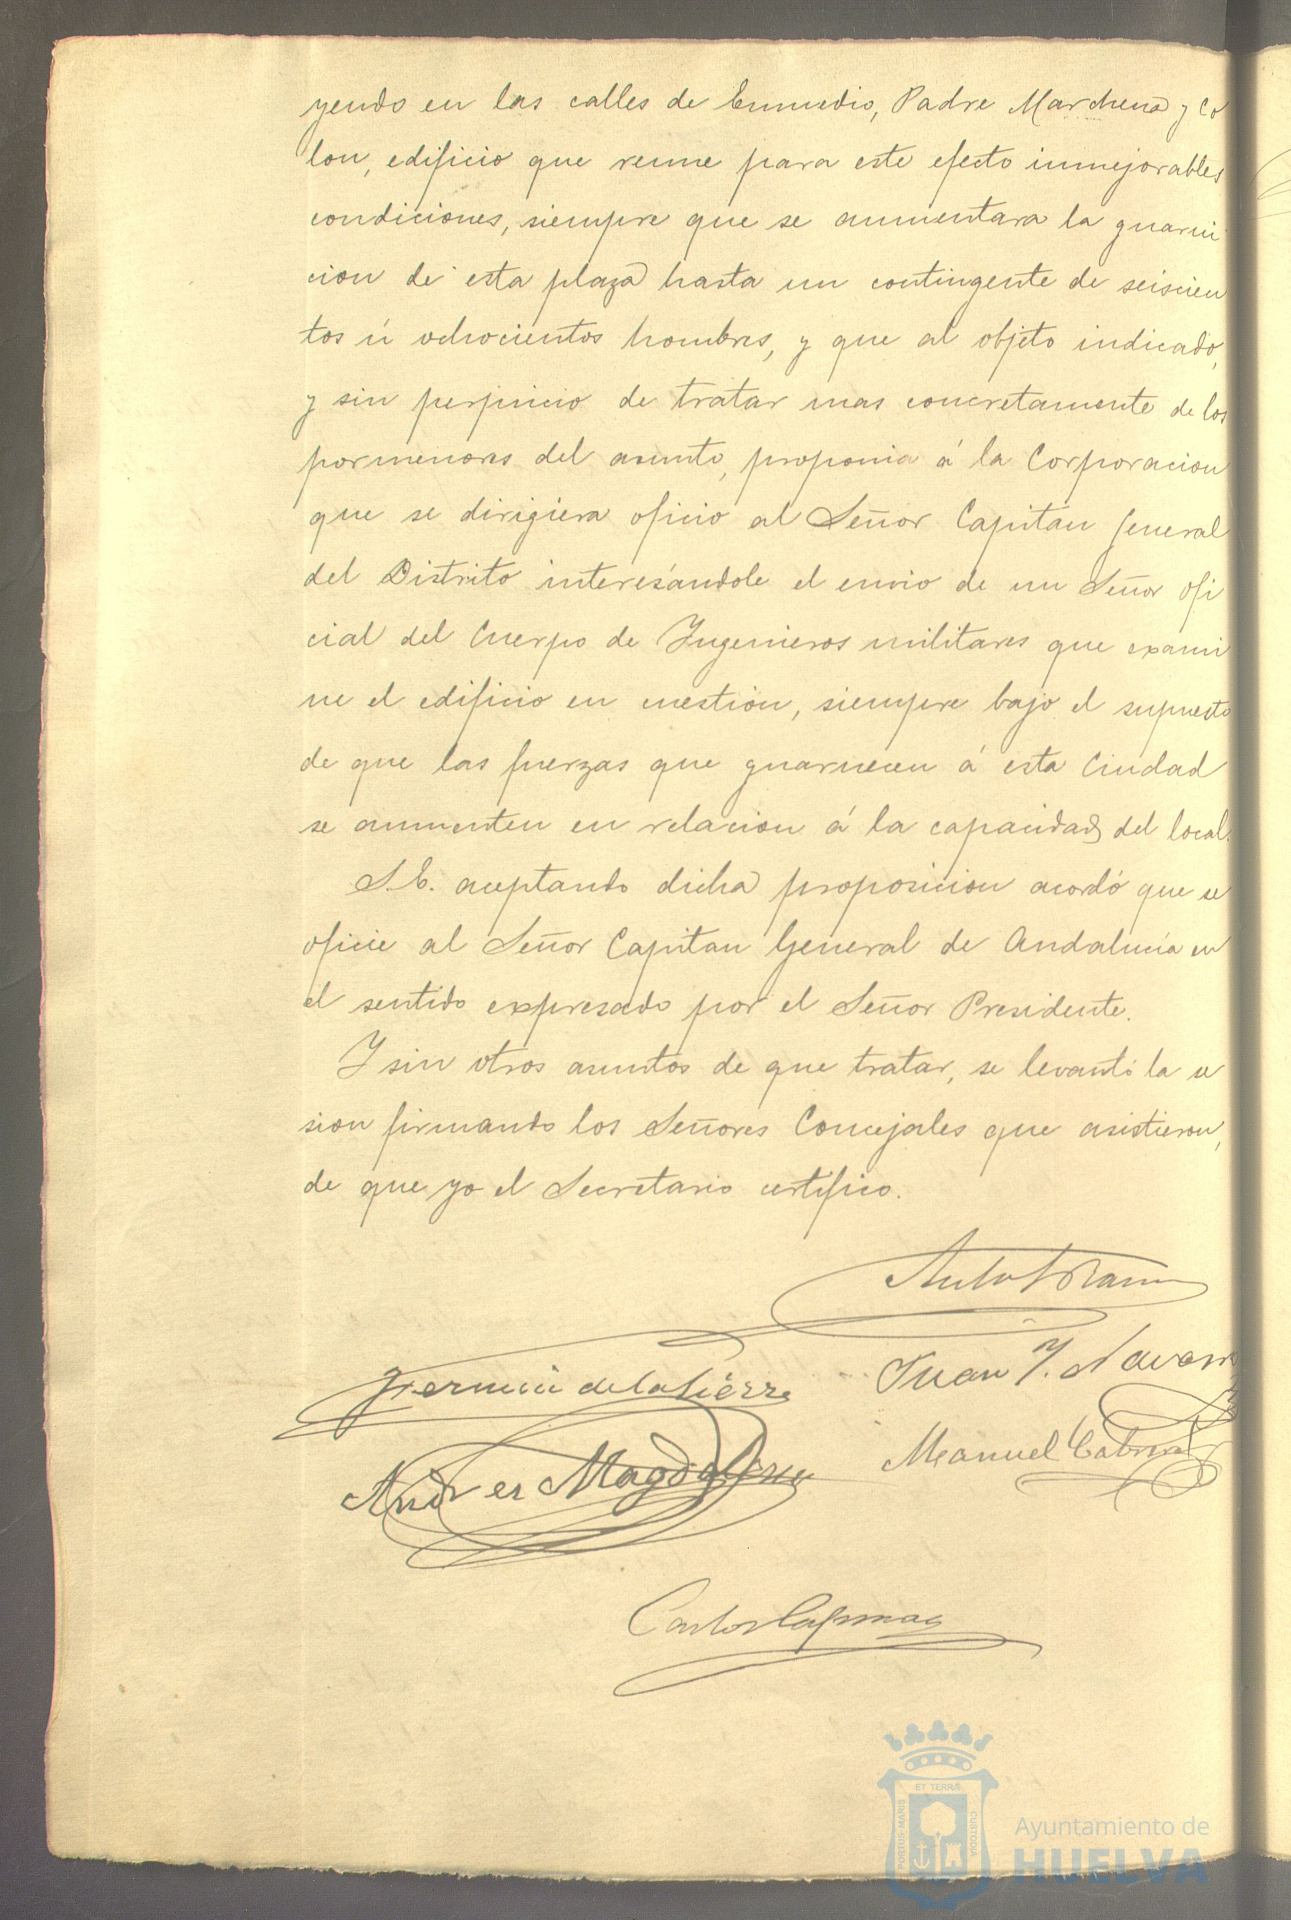 yendo en las calles de Enmedio, Padre Marchena y Co
lon, edificio que reune para este efecto inmejorables
condiciones, siempre que se aumentara la guarni
cion de esta plaza hasta un contingente de seiscien
tos ú ochocientos hombres, y que al objeto indicado,
y sin perjuicio de tratar mas concretamente de los
pormenores del asunto, proponia á la Corporacion
que se dirigiera oficio al Señor Capitán General
del Distrito interesándole el envio de un Señor ofi
cial del Cuerpo de Ingenieros militares que exami
ne el edificio en cuestion, siempre bajo el supuesto
de que las fuerzas que guarnecen á esta Ciudad
se aumenten en relacion á la capacidad del local.
S. E. aceptando dicha proposicion acordó que se
oficie al Señor Capitan General de Andalucía en
el sentido expresado por el Señor Presidente.
Y sin otros asuntos de que tratar, se levantó la se
sion firmando los Señores Concejales que asistieron,
de que yo el Secretario certifico.
Fermin de la Sierra
Juan J. Navarro
Andres Magdalena
Manuel Cabrera
Carlos
ET TERRÆ
PORTUS MARIS
CUSTODIA
Ayuntamiento de
HUELVA